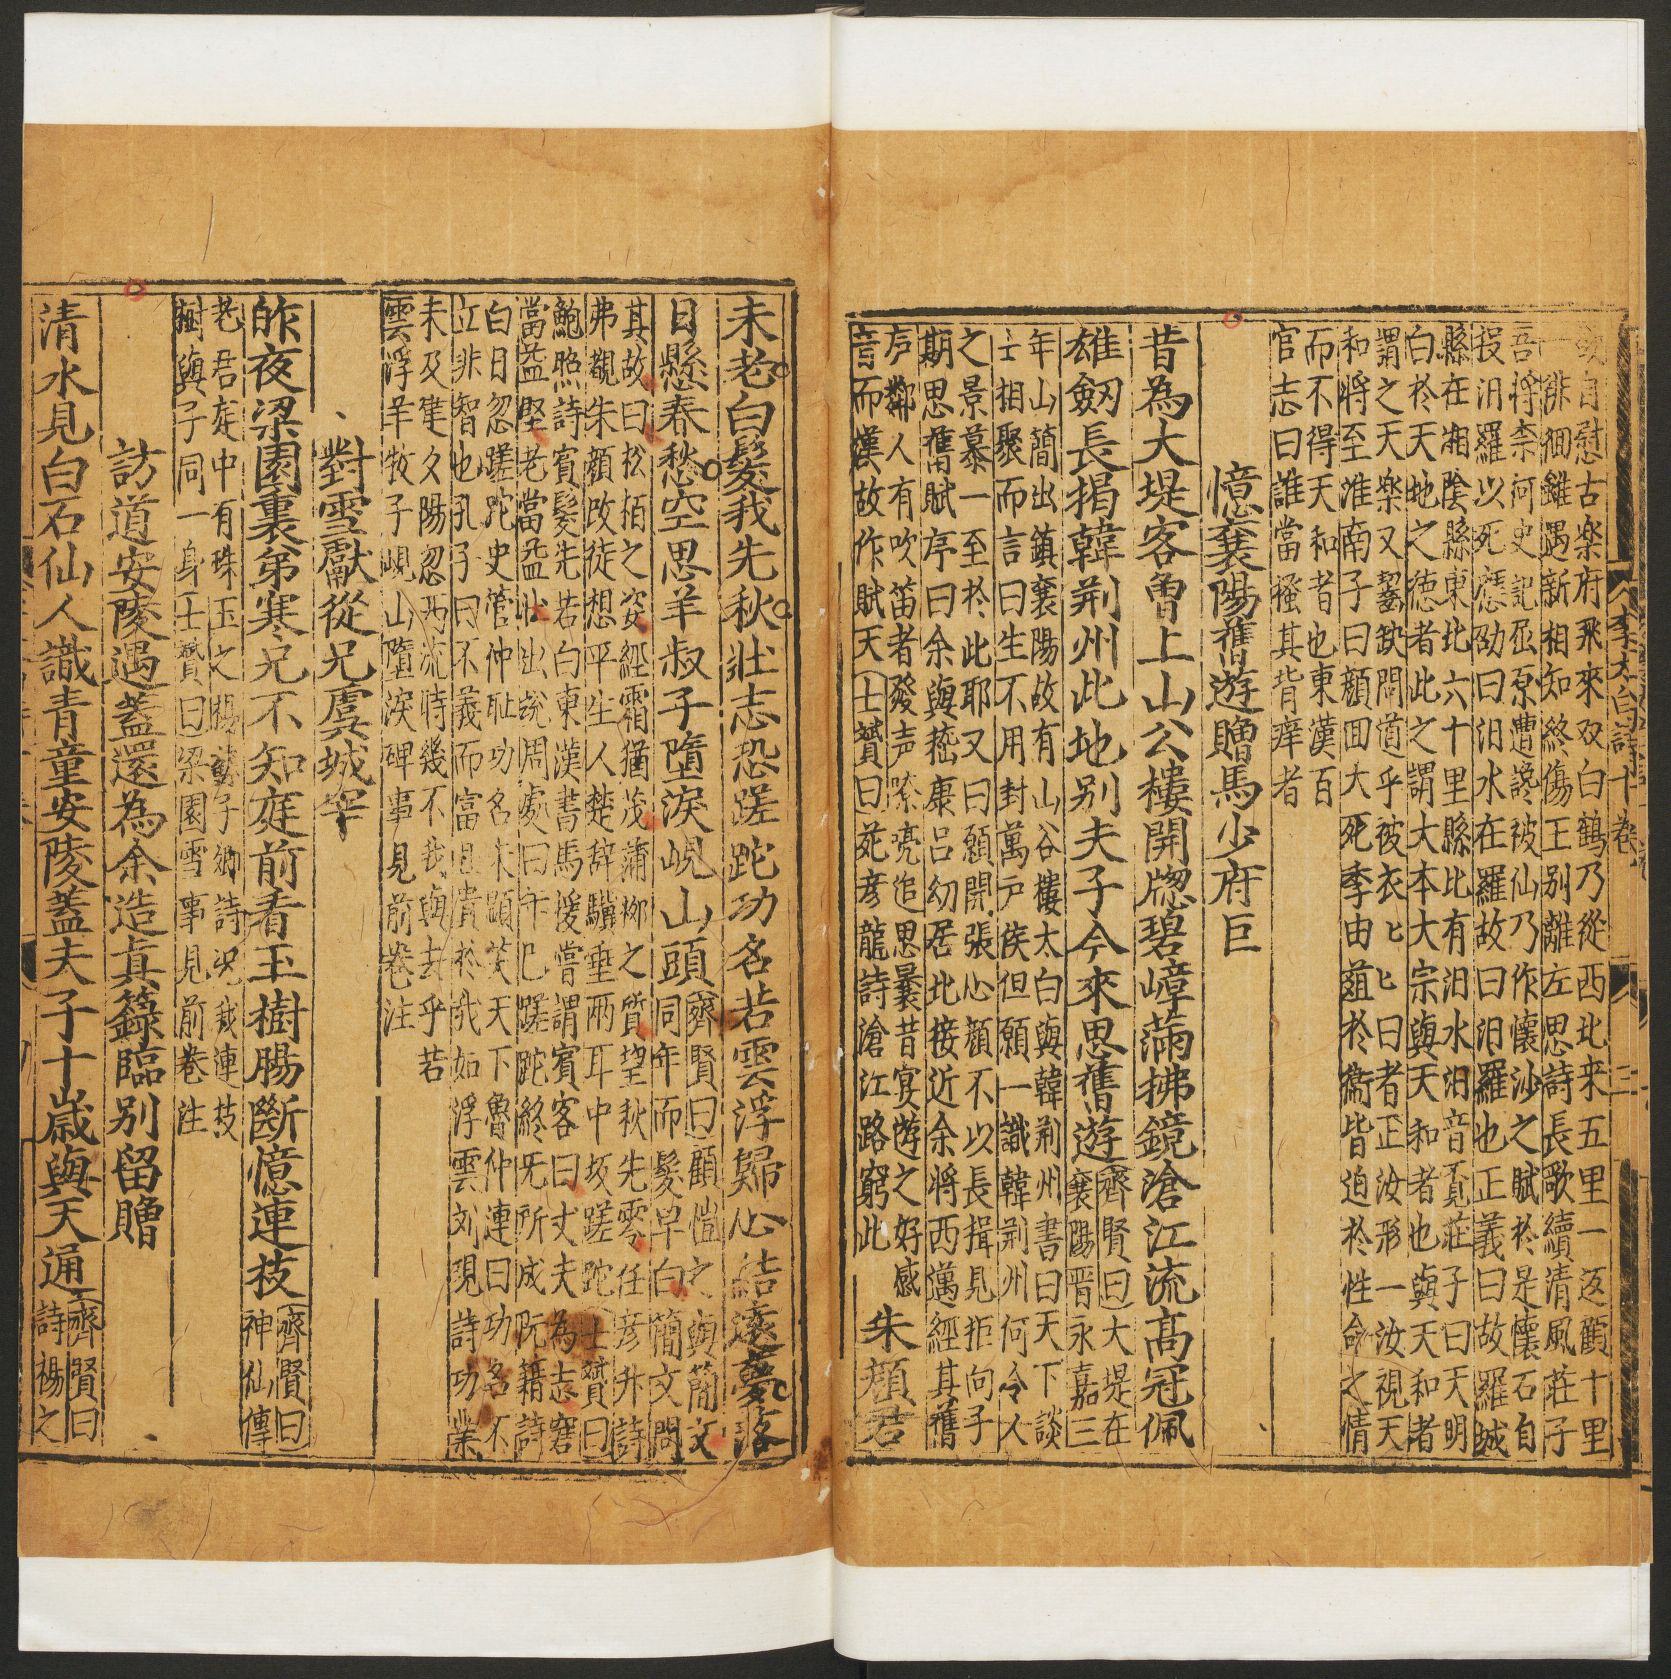 自慰古楽府飛來双白鶴乃從西北来五里一返顧十里
一徘徊雖遇新相知終傷王别離左思詩長歌續清風莊子
吾將柰何史記屈原遭讒被仙乃作懷沙之賦於是懷石自
投汨羅以死應劭曰汨水在羅故曰汨羅也正義曰故羅城
縣在湘陰縣東北六十里縣北有汨水汨音覓莊子曰天明
白於天地之德者此之謂大本大宗與天和者也與天和者
謂之天楽又齧缺問道乎被衣匕匕曰者正汝形一汝視天
和將至淮南子曰顔回大死季由葅於衞皆迫於性命之情
而不得天和者也東漢百
官志曰誰當搔其背痒者
憶襄陽舊遊贈馬少府巨
昔為大堤客曽上山公樓開牕碧嶂滿拂鏡滄江流髙冠佩
雄劒長揖韓荆州此地别夫子今來思舊遊齊賢曰大堤在
襄陽晋永嘉三
年山簡出鎮襄陽故有山谷樓太白與韓荆州書曰天下談
士相聚而言曰生不用封萬戸侯但願一識韓荆州何令人
之景慕一至於此耶又曰願開張心顔不以長揖見拒向子
期思舊賦序曰余與嵇康吕㓜居止接近余將西邁經其舊
序鄰人有吹笛者發声嘹亮追思曩昔宴遊之好感
音而嘆故作賦天士贇曰范彦龍詩滄江路窮此
朱顔君
未老白髪我先秋壯志恐蹉跎功名若雲浮歸心結遠夢落
日懸春愁空思羊叔子墮淚峴山頭齊賢曰顧愷之與簡文
同年而髪早白簡文問
其故曰松栢之姿經霜猶茂蒲栁之質望秋先零任彦升詩
弗覩朱顔改徒想平生人楚辞驥垂兩耳中坂蹉跎士贇曰
鮑照詩賓髪先若白東漢書馬援嘗謂賓客曰丈夫為志窮
當益堅老當益壯出説周處曰年已蹉跎終旡所成阮籍詩
白日忽蹉跎史管仲耻功名未顕於天下魯仲連曰功名不
立非智也孔子曰不義而富且貴於我如浮雲刘琨詩功業
未及建夕陽忽西流時幾不我與去乎若
雲浮羊牧子峴山墮淚碑事見前卷注
對雪獻從兄虞城宰
昨夜梁園裏弟寒兄不知庭前看玉樹腸斷憶連枝齊賢曰
神仙傳
老君庭中有珠玉之樹蘇子卿詩况我連枝
樹與子同一身士贇曰梁園雪事見前卷注
訪道安陵遇蓋還為余造真籙臨别留贈
清水見白石仙人識青童安陵蓋夫子十歳與天通齊賢曰
詩楊之
李太白詩十卷
三